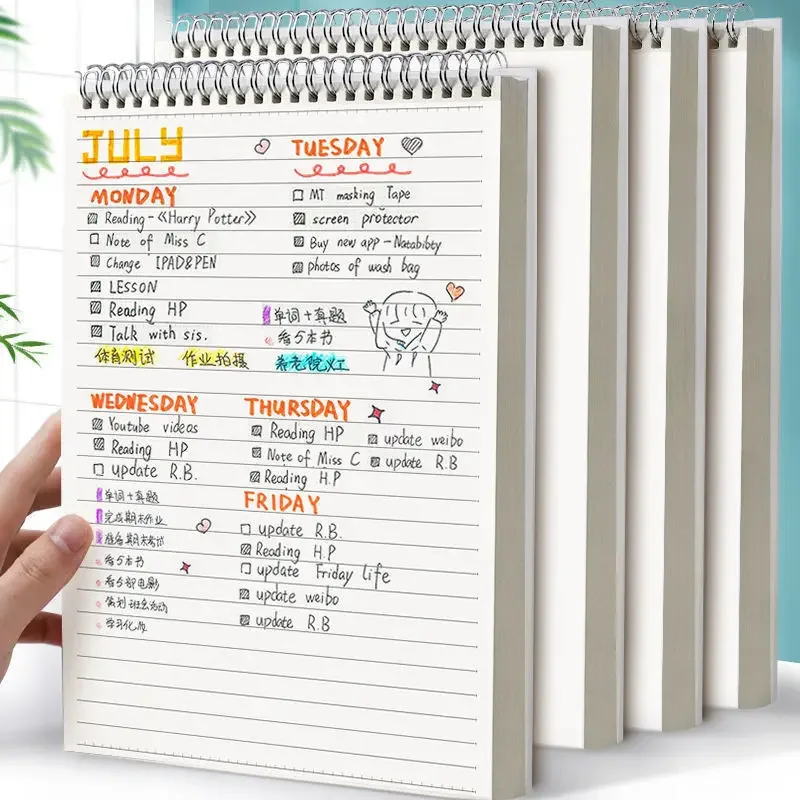 JULY
MONDAY
Reading-《Harry Potter》
Note of Miss C
Change IPAD&PEN
LESSON
Reading HP
Talk with sis.
体育测试 作业拍摄 养老院义工
TUESDAY
MT masking Tape
screen protector
Buy new app-Natabibty
photos of wash bag
单词+真题
看5本书
WEDNESDAY
Youtube videos
Reading HP
update R.B.
单词+真题
完成期末作业
准备期末考试
看5本书
看5部电影
策划班会活动
学习化妆
THURSDAY
Reading HP update weibo
Note of Miss C update R.B
Reading H.P
FRIDAY
update R.B.
Reading H.P
update Friday life
update weibo
update R.B